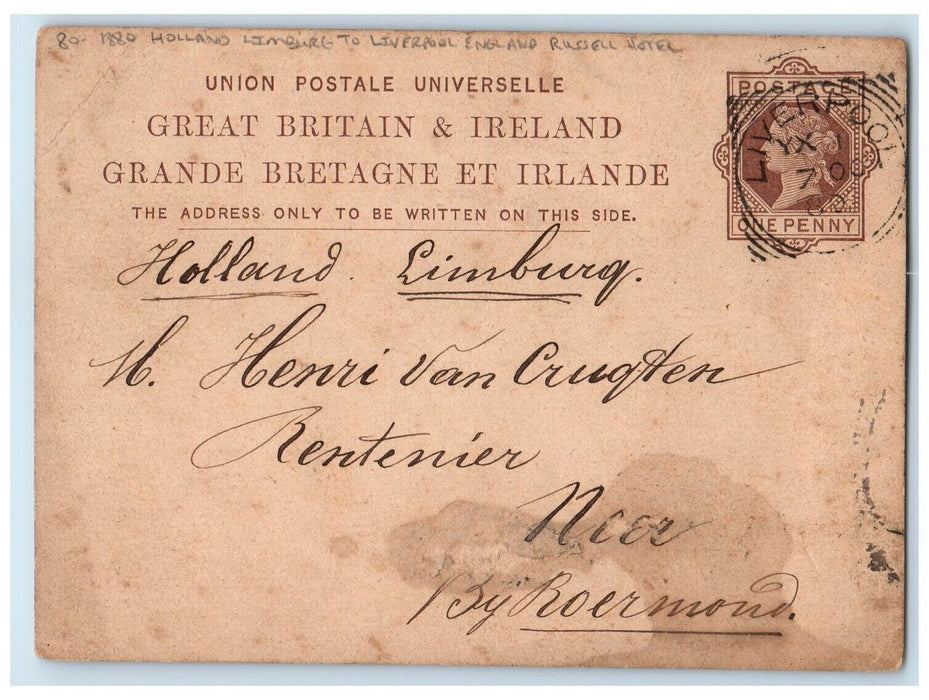 80- 1880 HOLLAND LIMBURG TO LIVERPOOL ENGLAND RUSSELL HOTEL
UNION POSTALE UNIVERSELLE
GREAT BRITAIN & IRELAND
GRANDE BRETAGNE ET IRLANDE
THE ADDRESS ONLY TO BE WRITTEN ON THIS SIDE.
POSTAGE
ONE PENNY
LIVERPOOL
YX
7 OC
Holland. Limburg.
M. Henri Van Crugten
Rentenier
Neer
Bij Roermond.